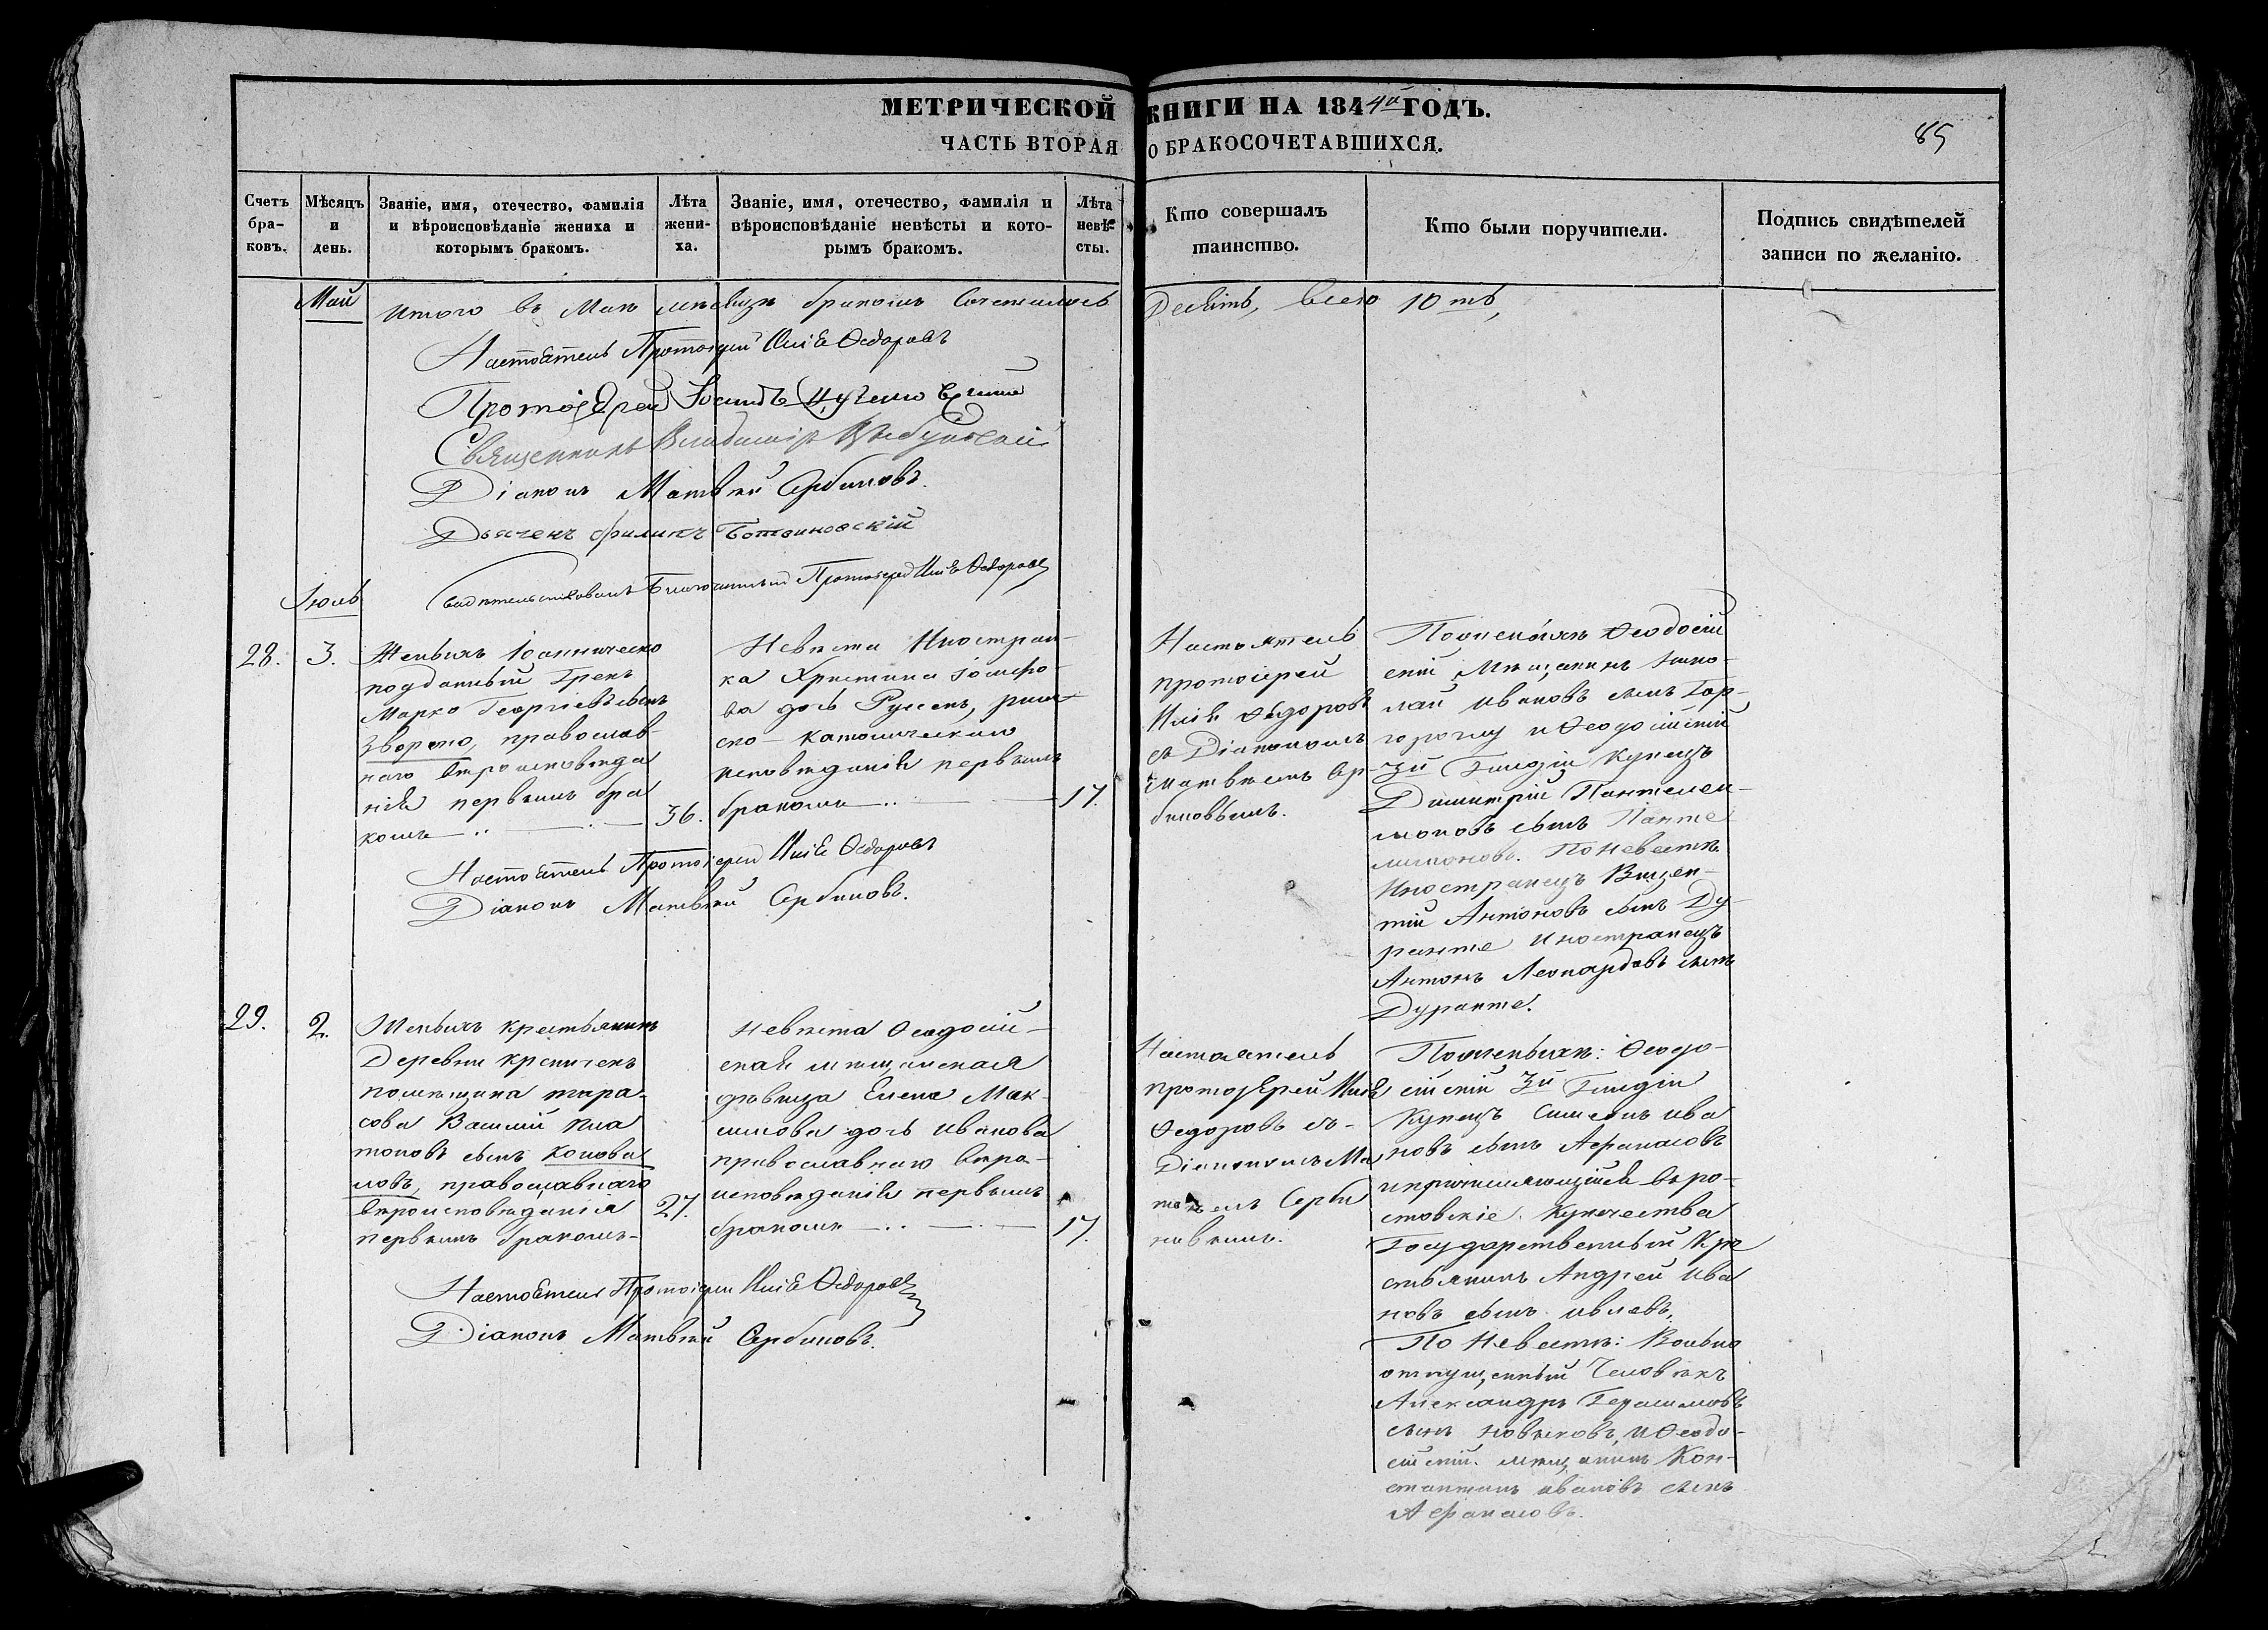 МЕТРИЧЕСКОЙ КНИГИ НА 1844й ГОДЪ.
ЧАСТЬ ВТОРАЯ О БРАКОСОЧЕТАВШИХСЯ.
85
Счетъ
бра-
ковъ.
Мѣсяцъ
и
день.
Званіе, имя, отечество, фамилія
и вѣроисповѣданіе жениха и
которымъ бракомъ.
Лѣта
жени-
ха.
Званіе, имя, отечество, фамилія и
вѣроисповѣданіе невѣсты и кото-
рымъ бракомъ.
Лѣта
невѣ-
сты.
Кто совершалъ
таинство.
Кто были поручители.
Подпись свидѣтелей
записи по желанію.
Май
Итого въ Маѣ мѣсяцѣ бракомъ сочеталось Десять, всего 10ть,
Настоятель Протоіерей Илія Ѳедоровъ
Протоіерей
Священникъ Владиміръ
Діаконъ Матвѣй Сербиновъ.
Дьячекъ Филипъ
Свидѣтельствовалъ Благочинный Протоіерей Илія Ѳедоровъ
Іюль
28.
3.
Женихъ Іоническо
подданный Грекъ
Марко Георгіевъ сынъ
православ-
наго вѣроисповѣда
нія первымъ бра
комъ
36.
Невѣста Иностран-
ка Христина Іосифо-
ва дочь Руссенъ, рим-
ско-католическаго
исповѣданія первымъ
бракомъ
17.
Настоятель
протоіерей
Илія Ѳедоровъ
съ Діакономъ
Матвѣемъ Сер-
биновымъ.
По женихѣ Ѳеодосій
скій Мѣщанинъ Нико-
лай Ивановъ сынъ Гор-
и Ѳеодосійскій
3й Гилдіи Купецъ
Димитрій Пантелей-
моновъ сынъ Панте
лимоновъ. По невестѣ
Иностранецъ Вицен-
тій Антоновъ сынъ Ду-
ранте Иностранецъ
Антонъ Леонардовъ сынъ
Дуранте.
Настоятель Протоіерей Илія Ѳедоровъ
Діаконъ Матвѣй Сербиновъ.
29.
2.
Женихъ крестьянинъ
Деревни Креничекъ
помѣщика тара-
сова Василій Пла
тоновъ сынъ Конова
ловъ, православнаго
вѣроисповѣданія
первымъ бракомъ-
27.
Невѣста Ѳеодосій-
ская мѣщанская
дѣвица Елена Мак-
симова дочь Иванова
православнаго вѣро-
исповѣданія первымъ
бракомъ
17.
Настоятель
протоіерей Илія
Ѳедоровъ съ-
Діакономъ Ма
твѣемъ Серби
новымъ.
По женихѣ: Ѳеодо-
сійскій 3й Гилдіи
Купецъ Симеонъ Ива
новъ сынъ Афанасовъ
и причисляющійся въ ро-
стовскіе Купечества
Государственный Кре
стьянинъ Андрей Ива
новъ сынъ Ивлевъ,
По Невестѣ: Вольно
отпущенный Человѣкъ
Александръ Герасимовъ
сынъ Новиковъ, и Ѳеодо-
сійскій мѣщанинъ Кон-
стантинъ Ивановъ сынъ
Афанасовъ.
Настоятель Протоіерей Илія Ѳедоровъ
Діаконъ Матвѣй Сербиновъ.